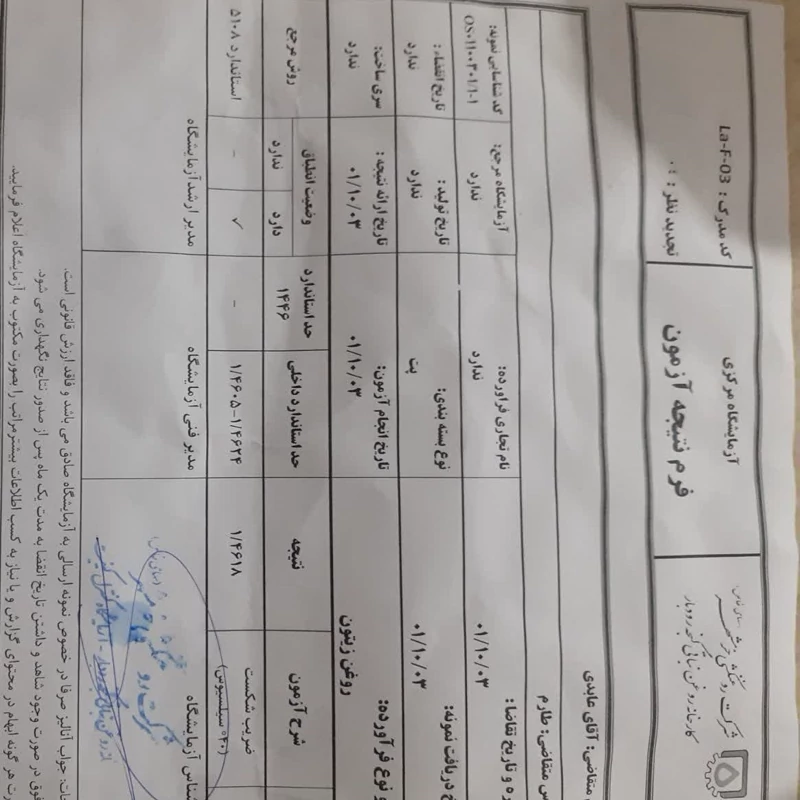 کد مدرک : La-F-03
تجدید نظر : ۰۱
آزمایشگاه مرکزی
فرم نتیجه آزمون
متقاضی: آقای عابدی
س متقاضی: طارم
ره و تاریخ تقاضا :
۰۱/۱۰/۰۳
نام تجاری فراورده:
ندارد
آزمایشگاه مرجع:
ندارد
کد شناسایی نمونه:
خ دریافت نمونه:
۰۱/۱۰/۰۳
نوع بسته بندی:
پت
تاریخ تولید :
ندارد
تاریخ انقضاء :
ندارد
و نوع فرآورده:
روغن زیتون
تاریخ انجام آزمون:
۰۱/۱۰/۰۳
تاریخ ارائه نتیجه :
۰۱/۱۰/۰۳
سری ساخت:
ندارد
شرح آزمون
نتیجه
حد استاندارد داخلی
حد استاندارد
۱۴۴۶
وضعیت انطباق
دارد
ندارد
روش مرجع
ضریب شکست
(۴۰° سیلسیوس)
۱/۴۶۱۸
۱/۴۶۰۵-۱/۴۶۲۴
-
✓
-
استاندارد ۵۱۰۸
ناس آزمایشگاه
مدیر فنی آزمایشگاه
مدیر ارشد آزمایشگاه
جواب آنالیز صرفا در خصوص نمونه ارسالی به آزمایشگاه صادق می باشد و فاقد ارزش قانونی است.
فوق در صورت وجود شاهد و داشتن تاریخ انقضا به مدت یک ماه پس از صدور نتایج نگهداری می شود.
ت هر گونه ابهام در محتوای گزارش و یا نیاز به کسب اطلاعات بیشتر مراتب را بصورت مکتوب به آزمایشگاه اعلام فرمایید.